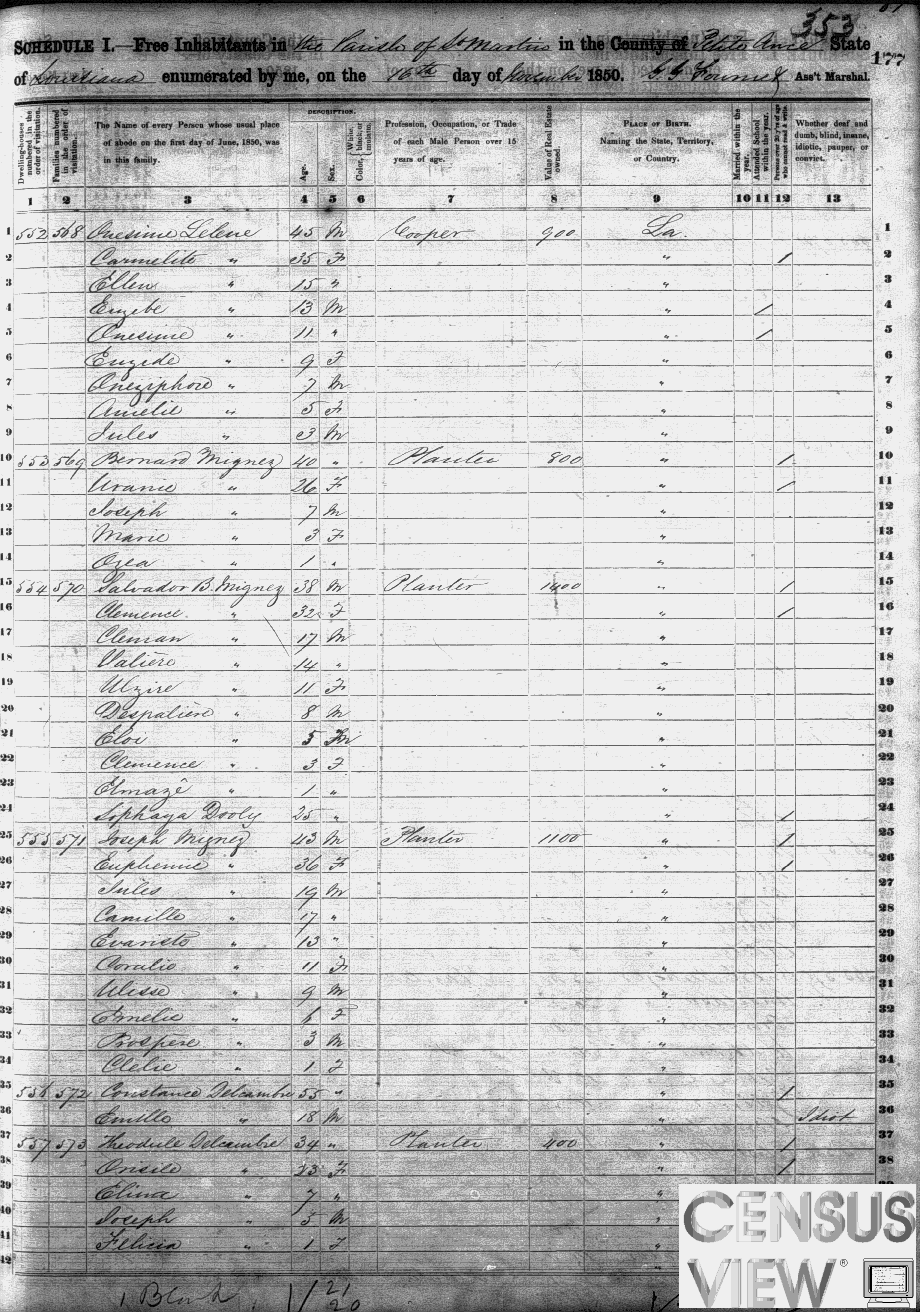 353
SCHEDULE I.—Free Inhabitants in the Parish of St Martins in the County of Petite Ance State 177
of Louisiana enumerated by me, on the 16th day of November 1850. Ass't Marshal.
Dwelling-houses numbered in the order of visitation.
Families numbered in the order of visitation.
The Name of every Person whose usual place of abode on the first day of June, 1850, was in this family.
DESCRIPTION.
Age.
Sex.
Color, White, black, or mulatto.
Profession, Occupation, or Trade of each Male Person over 15 years of age.
Value of Real Estate owned.
PLACE OF BIRTH. Naming the State, Territory, or Country.
Married within the year.
Attended School within the year.
Persons over 20 y'rs of age who cannot read & write.
Whether deaf and dumb, blind, insane, idiotic, pauper, or convict.
1 2 3 4 5 6 7 8 9 10 11 12 13
1 552 568 Onesime Leleue 45 M Cooper 900 La. 1
2 Carmelite " 35 F " / 2
3 Ellen " 15 " " 3
4 Euzebe " 13 M " / 4
5 Onesime " 11 " " / 5
6 Euzide " 9 F " 6
7 Oneziphore " 7 M " 7
8 Amelie " 5 F " 8
9 Jules " 3 M " 9
10 553 569 Bernard Mignez 40 " Planter 800 " / 10
11 Uranie " 26 F " / 11
12 Joseph " 7 M " 12
13 Marie " 3 F " 13
14 Ozea " 1 " " 14
15 554 570 Salvador B. Mignez 38 M Planter 1400 " / 15
16 Clemence " 32 F " / 16
17 Cleman " 17 M " 17
18 Valière " 14 " " 18
19 Ulzire " 11 F " 19
20 Despalière " 8 M " 20
21 Eloi " 5 M " 21
22 Clemence " 3 F " 22
23 Elmazé " 1 " " 23
24 Sophaya Dooly 25 " " / 24
25 555 571 Joseph Mignez 43 M Planter 1100 " / 25
26 Euphemie " 36 F " / 26
27 Jules " 19 M " 27
28 Camille " 17 " " 28
29 Evariste " 13 " " 29
30 Coralie " 11 F " 30
31 Ulisse " 9 M " 31
32 Emelie " 6 F " 32
33 Prospere " 3 M " 33
34 Clelie " 1 F " 34
35 556 572 Constance Delcambre 55 " " / 35
36 Emille " 18 M " Idiot 36
37 557 573 Theodule Delcambre 34 " Planter 400 " / 37
38 Onsile " 23 F " / 38
39 Elina " 7 " " 39
40 Joseph " 5 M "
41 Felicia " 1 F "
42
1 Blank 1/ 21
20
CENSUS
VIEW®